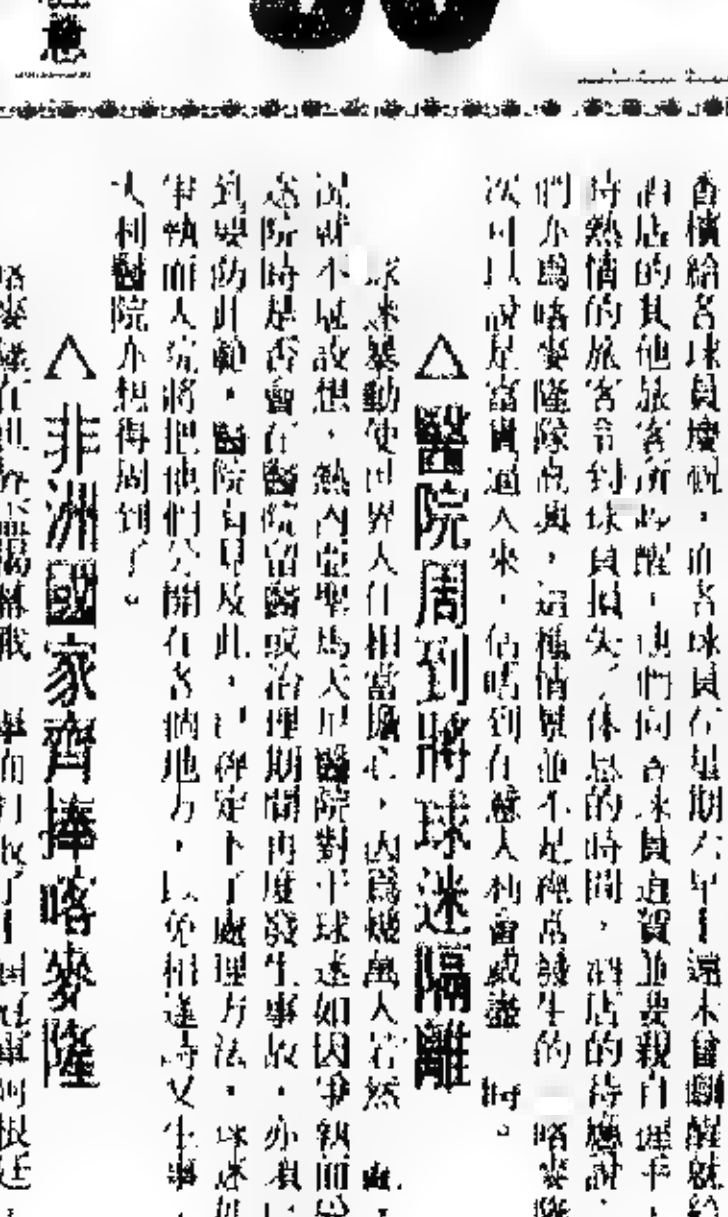 意
香檳給各球員慶祝，而各球員在星期六早上還未曾瞓醒就給
酒店的其他旅客所吵醒，他們向各球員道賀並要親自握手，
時熱情的旅客令到球員損失了休息的時間，酒店的侍應說，
們亦為喀麥隆隊高興，這種情景並不是經常發生的，喀麥隆
次可以說是富貴迫人來，估唔到在意大利會威盡一時。
△醫院周到將球迷隔離
球迷暴動使世界人仕相當擔心，因為幾萬人若然
況就不堪設想，熱內亞聖馬天尼醫院對于球迷如因爭執而
送院時是否會在醫院留醫或治理期間再度發生事故，亦須
到要防此範，醫院有見及此，已經定下了處理方法，球迷
爭執而入院將把他們分開在各個地方，以免相逢時又生事，
大利醫院亦想得周到了。
△非洲國家齊捧喀麥隆
喀麥隆在世界盃揭幕戰一舉而打敗了